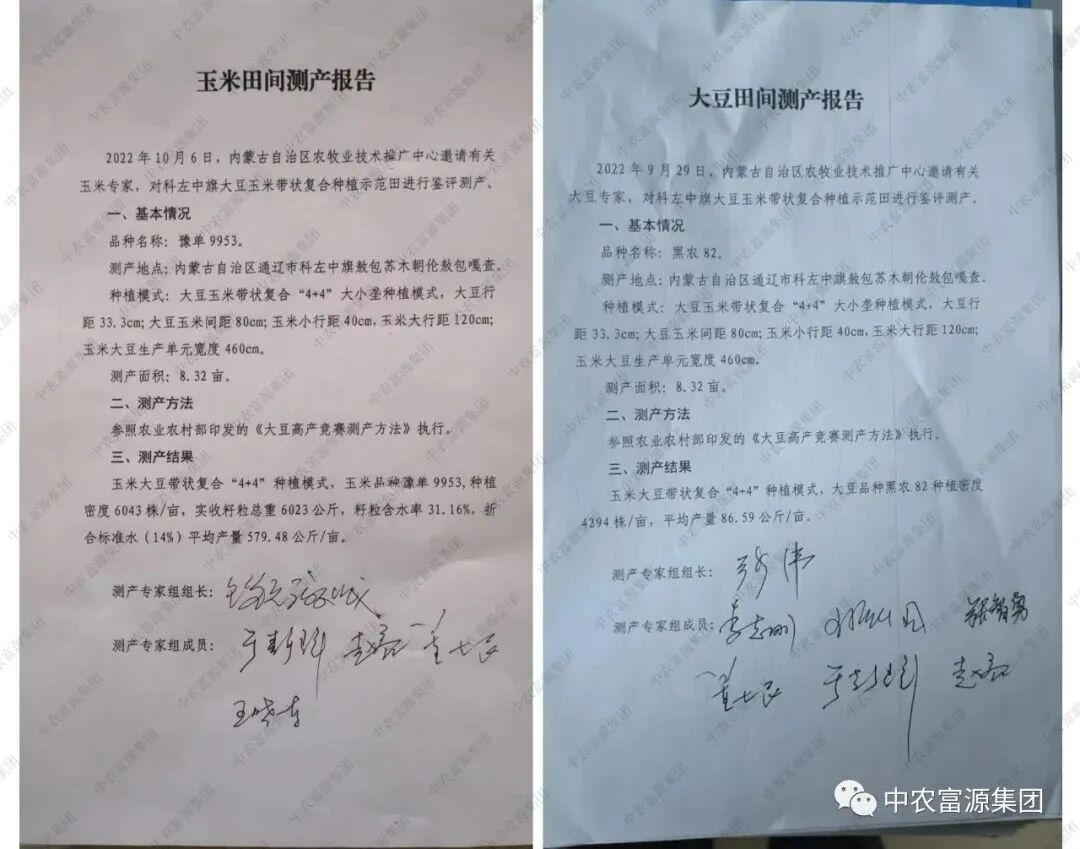 玉米田间测产报告
2022年10月6日，内蒙古自治区农牧业技术推广中心邀请有关
玉米专家，对科左中旗大豆玉米带状复合种植示范田进行鉴评测产。
一、基本情况
品种名称：豫单9953。
测产地点：内蒙古自治区通辽市科左中旗敖包苏木朝伦敖包嘎查。
种植模式：大豆玉米带状复合“4+4”大小垄种植模式，大豆行
距33.3cm；大豆玉米间距80cm；玉米小行距40cm，玉米大行距120cm；
玉米大豆生产单元宽度460cm。
测产面积：8.32亩。
二、测产方法
参照农业农村部印发的《大豆高产竞赛测产方法》执行。
三、测产结果
玉米大豆带状复合“4+4”种植模式，玉米品种豫单9953，种植
密度6043株/亩，实收籽粒总重6023公斤，籽粒含水率31.16%，折
合标准水（14%）平均产量579.48公斤/亩。
测产专家组组长：
测产专家组成员：
大豆田间测产报告
2022年9月29日，内蒙古自治区农牧业技术推广中心邀请有关
大豆专家，对科左中旗大豆玉米带状复合种植示范田进行鉴评测产。
一、基本情况
品种名称：黑农82。
测产地点：内蒙古自治区通辽市科左中旗敖包苏木朝伦敖包嘎查。
种植模式：大豆玉米带状复合“4+4”大小垄种植模式，大豆行
距33.3cm；大豆玉米间距80cm；玉米小行距40cm，玉米大行距120cm；
玉米大豆生产单元宽度460cm。
测产面积：8.32亩。
二、测产方法
参照农业农村部印发的《大豆高产竞赛测产方法》执行。
三、测产结果
玉米大豆带状复合“4+4”种植模式，大豆品种黑农82种植密度
4294株/亩，平均产量86.59公斤/亩。
测产专家组组长：
测产专家组成员：李志刚
中农富源集团